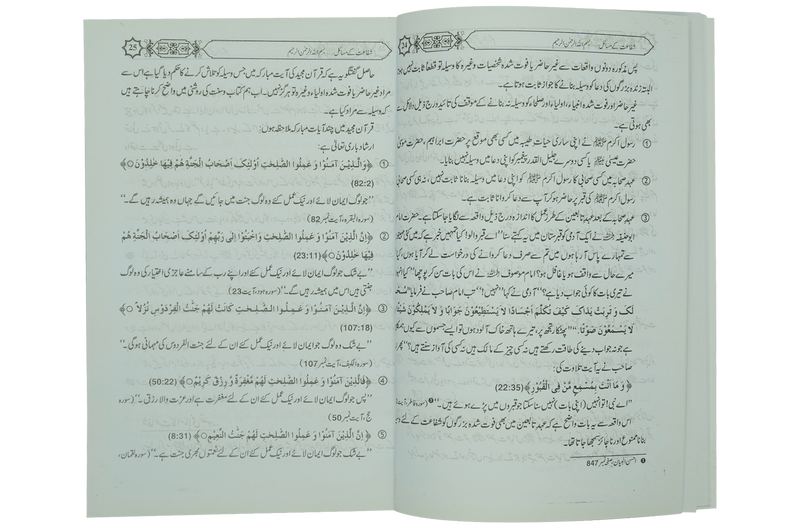 24 شفاعت کے مسائل.... بسم اللہ الرحمن الرحیم
پس مذکورہ دونوں واقعات سے غیر حاضر یا فوت شدہ شخصیات وغیرہ کا وسیلہ تو قطعاً ثابت نہیں ہوتا
البتہ زندہ بزرگوں کی دعا کو وسیلہ بنانے کا جواز ثابت ہوتا ہے۔
غیر حاضر اور فوت شدہ انبیاء، اولیاء اور صلحاء کو وسیلہ نہ بنانے کے موقف کی تائید درج ذیل دلائل سے
بھی ہوتی ہے۔
① رسول اکرم ﷺ نے اپنی ساری حیات طیبہ میں کسی بھی موقع پر حضرت ابراہیم، حضرت موسیٰ
حضرت عیسیٰ یا کسی دوسرے جلیل القدر پیغمبر کو اپنی دعا میں وسیلہ نہیں بنایا۔
② عہد صحابہ میں کسی صحابی کا رسول اکرم ﷺ کو اپنی دعا میں وسیلہ بنانا ثابت نہیں، نہ ہی کسی صحابی
کا رسول اکرم ﷺ کی قبر پر حاضر ہو کر آپ سے دعا کروانا ثابت ہے۔
③ عہد صحابہ کے بعد عہد تابعین کے طرز عمل کا اندازہ درج ذیل واقعہ سے لگایا جا سکتا ہے۔ حضرت امام
ابوحنیفہ نے ایک آدمی کو قبرستان میں یہ کہتے سنا "اے قبر والو! کیا تمہیں خبر ہے کہ میں کئی
سے تمہارے پاس آ رہا ہوں میں تم سے صرف دعا کروانے کی درخواست لے کر آیا ہوں، کیا
میرے حال سے واقف ہو یا غافل ہو؟" امام موصوف نے اس کی بات سن کر پوچھا "کیا انہوں
نے تیری بات کا کوئی جواب دیا ہے؟" آدمی نے کہا "نہیں!" تب امام صاحب نے فرمایا
لَكَ وَ تَرِبَتْ يَدَاكَ كَيْفَ تُكَلِّمُ أَجْسَادًا لَا يَسْتَطِيْعُوْنَ جَوَابًا وَ لَا يَمْلِكُوْنَ شَيْئًا
لَا يَسْمَعُوْنَ صَوْتًا۔ "پھٹکار تجھ پر، تیرے ہاتھ خاک آلود ہوں تو ایسے جسموں سے کیوں
ہے جو نہ جواب دینے کی طاقت رکھتے ہیں نہ کسی چیز کے مالک ہیں نہ کسی کی آواز سنتے ہیں؟" پھر
صاحب نے یہ آیت تلاوت کی:
﴿وَ مَا أَنْتَ بِمُسْمِعٍ مَّنْ فِى الْقُبُوْرِ﴾ (22:35)
"اے نبی! تو انہیں (اپنی بات) نہیں سنا سکتا جو قبروں میں پڑے ہوئے ہیں۔"
اس واقعہ سے یہ بات واضح ہے کہ عہد تابعین میں بھی فوت شدہ بزرگوں کو شفاعت کے لئے
بنانا ممنوع اور ناجائز سمجھا جاتا تھا۔
احسن البیان، صفحہ نمبر 847
25 شفاعت کے مسائل.... بسم اللہ الرحمن الرحیم
حاصل گفتگو یہ ہے کہ قرآن مجید کی آیت مبارکہ میں جس وسیلہ کو تلاش کرنے کا حکم دیا گیا ہے اس سے
مراد غیر حاضر یا فوت شدہ اولیاء وغیرہ تو ہرگز نہیں۔ اب ہم کتاب و سنت کی روشنی میں واضح کرنا چاہتے ہیں
کہ وسیلہ سے مراد کیا ہے۔
قرآن مجید میں چند آیات مبارکہ ملاحظہ ہوں:
ارشاد باری تعالیٰ ہے:
① ﴿وَالَّذِيْنَ آمَنُوْا وَ عَمِلُوا الصّٰلِحٰتِ أُولٰئِكَ أَصْحَابُ الْجَنَّةِ هُمْ فِيْهَا خٰلِدُوْنَ○﴾
(82:2)
"جو لوگ ایمان لائے اور نیک عمل کئے وہ لوگ جنت میں جائیں گے جہاں وہ ہمیشہ رہیں گے۔"
(سورہ البقرہ، آیت نمبر 82)
② ﴿إِنَّ الَّذِيْنَ آمَنُوْا وَ عَمِلُوا الصّٰلِحٰتِ وَاَخْبَتُوْا اِلٰى رَبِّهِمْ أُولٰئِكَ أَصْحَابُ الْجَنَّةِ هُمْ
فِيْهَا خٰلِدُوْنَ○﴾ (23:11)
"بے شک جو لوگ ایمان لائے اور نیک عمل کئے اور اپنے رب کے سامنے عاجزی اختیار کی وہ لوگ
جنتی ہیں اس میں ہمیشہ رہیں گے۔" (سورہ ہود، آیت 23)
③ ﴿إِنَّ الَّذِيْنَ آمَنُوْا وَ عَمِلُوا الصّٰلِحٰتِ كَانَتْ لَهُمْ جَنّٰتُ الْفِرْدَوْسِ نُزُلاً○﴾
(107:18)
"بے شک جو لوگ ایمان لائے اور نیک عمل کئے ان کے لئے جنت الفردوس کی مہمانی ہوگی۔"
(سورہ الکہف، آیت نمبر 107)
④ ﴿فَالَّذِيْنَ آمَنُوْا وَ عَمِلُوا الصّٰلِحٰتِ لَهُمْ مَّغْفِرَةٌ وَّ رِزْقٌ كَرِيْمٌ○﴾ (50:22)
"پس جو لوگ ایمان لائے اور نیک عمل کئے ان کے لئے مغفرت ہے اور عزت والا رزق۔" (سورہ
حج، آیت نمبر 50)
⑤ ﴿إِنَّ الَّذِيْنَ آمَنُوْا وَ عَمِلُوا الصّٰلِحٰتِ لَهُمْ جَنّٰتُ النَّعِيْمِ○﴾ (8:31)
"بے شک جو لوگ ایمان لائے اور نیک عمل کئے ان کے لئے نعمتوں بھری جنت ہے۔" (سورہ لقمان،